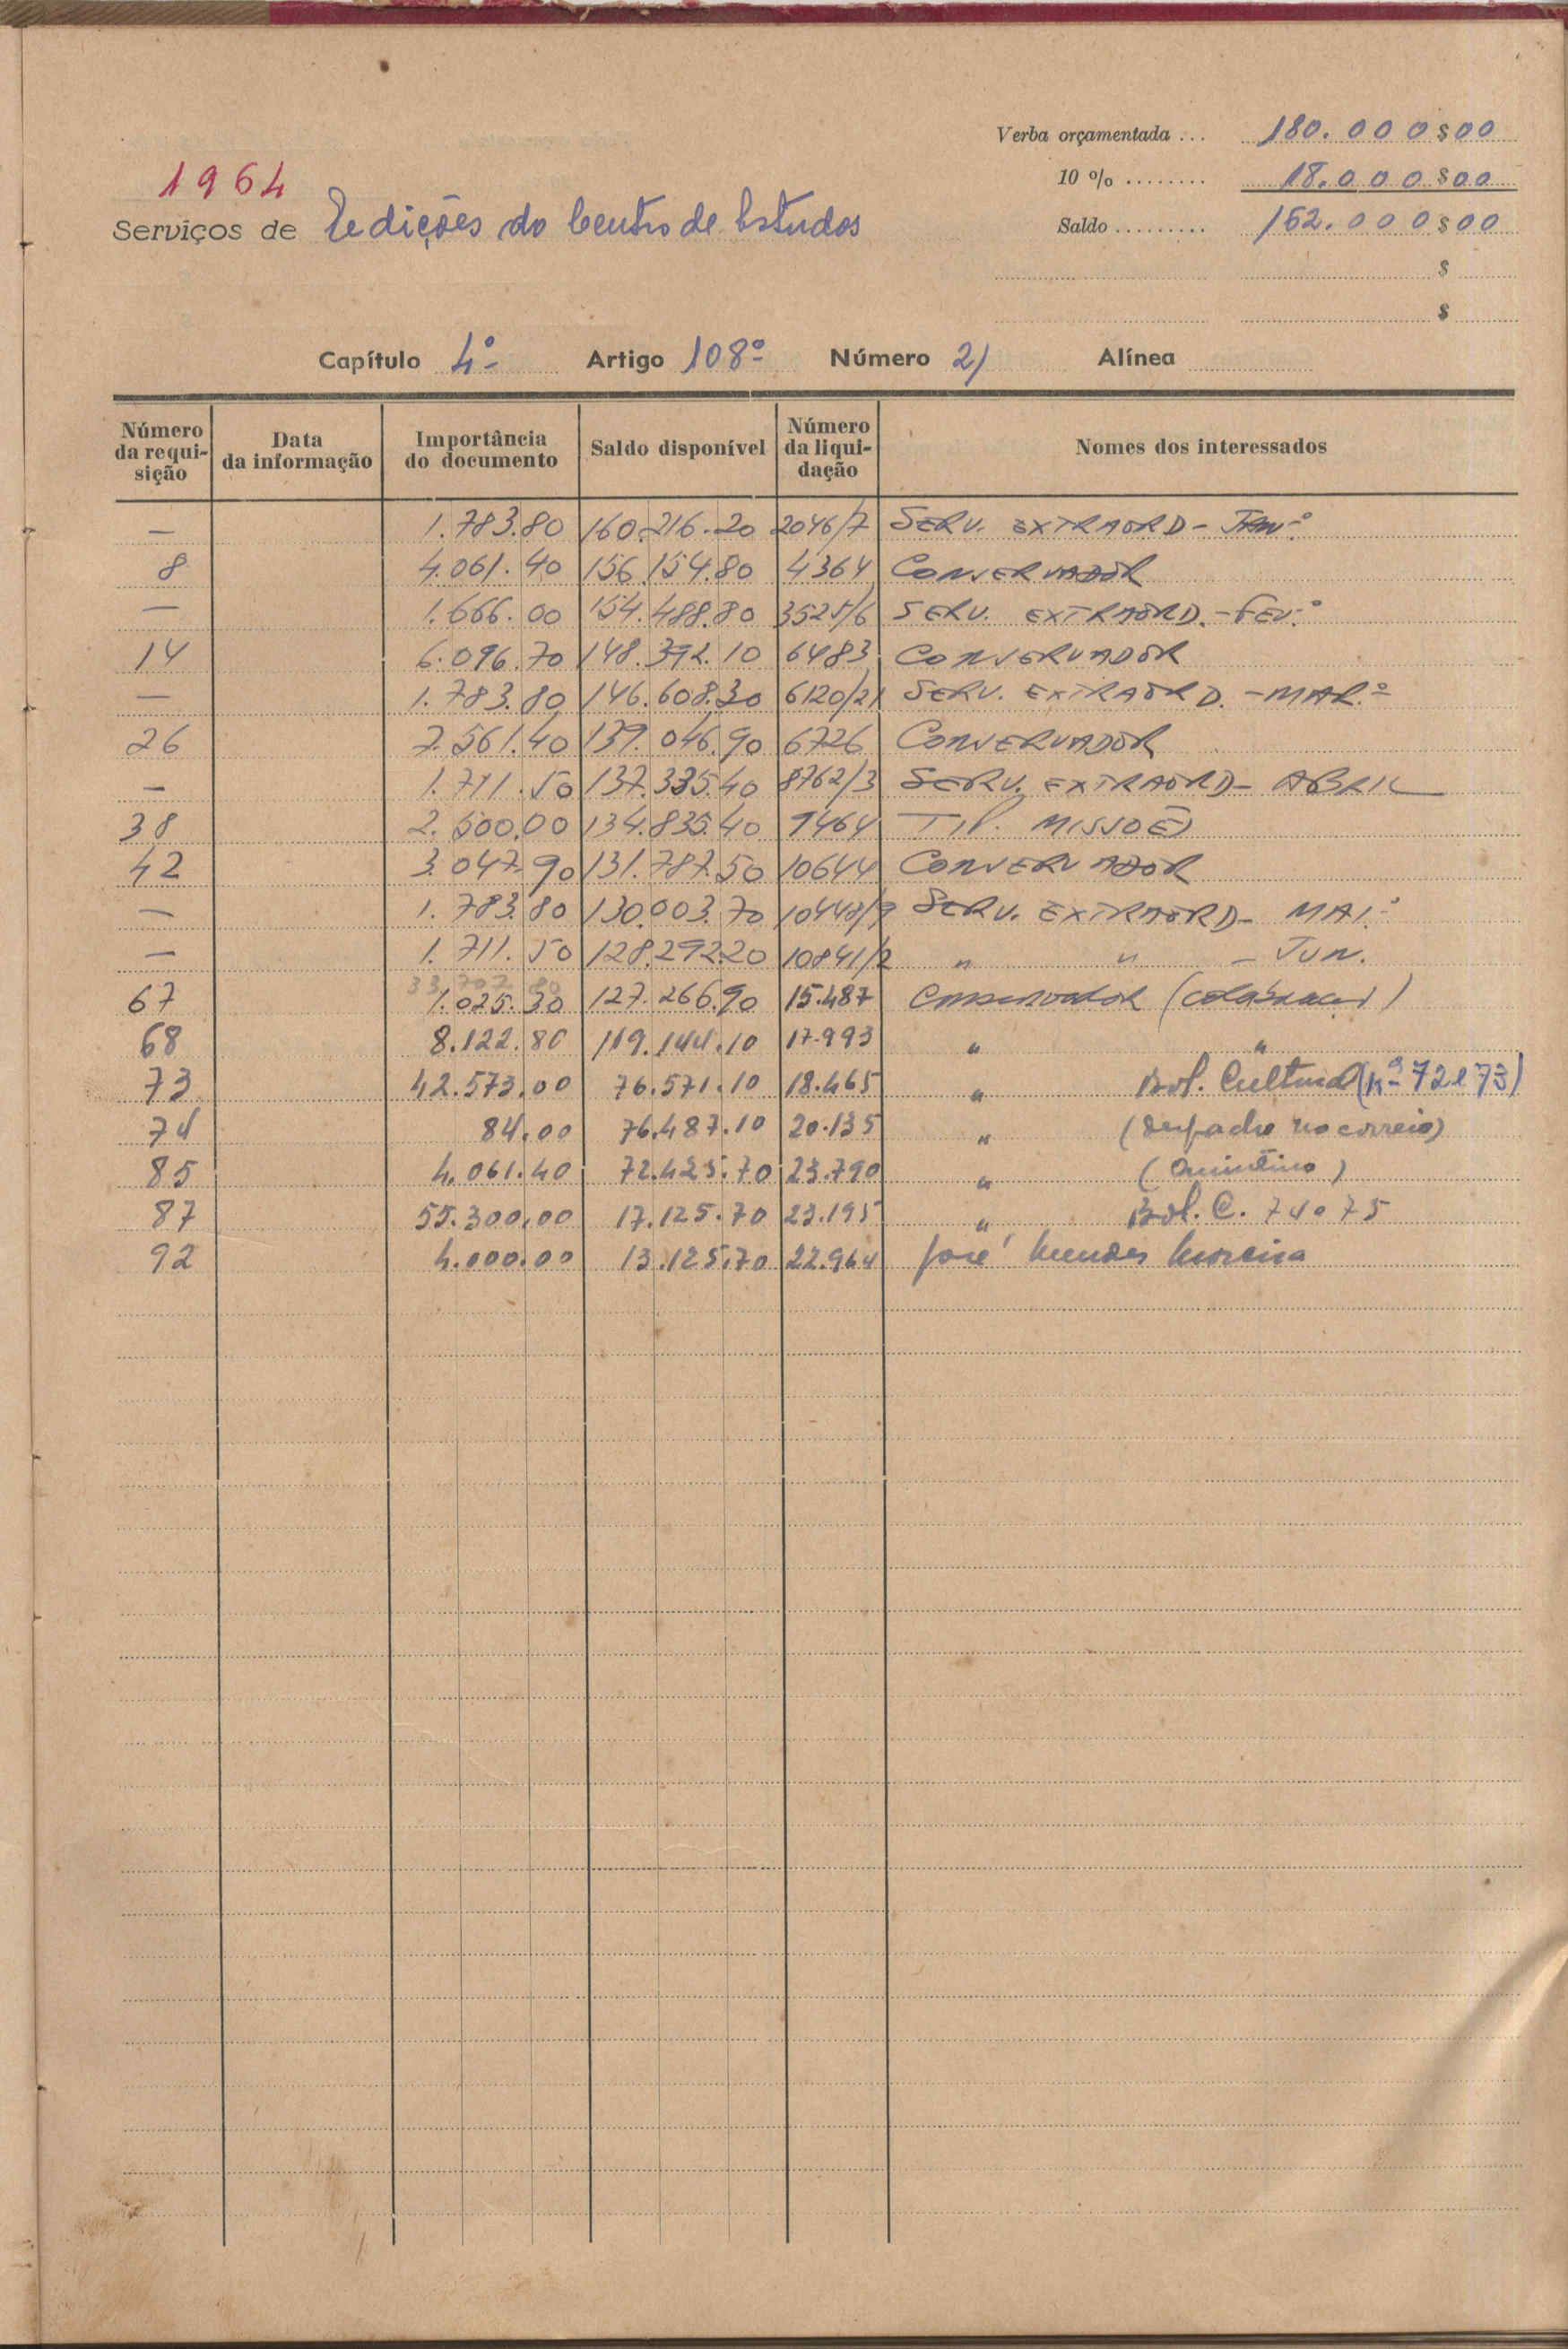 Verba orçamentada ... 180.000$00
10 % ........ 18.000$00
1964
Serviços de Edições do Centro de Estudos
Saldo ......... 162.000$00
$
$
Capítulo 4º Artigo 108º Número 2) Alínea
Número da requisição Data da informação Importância do documento Saldo disponível Número da liquidação Nomes dos interessados
— 1.783.80 160.216.20 2046/7 SERV. EXTRAORD - JANº
8 4.061.40 156.154.80 4364 CONSERVADOR
— 1.666.00 154.488.80 3525/6 SERV. EXTRAORD. - FEV.º
14 6.096.70 148.392.10 6483 CONSERVADOR
— 1.783.80 146.608.30 6120/21 SERV. EXTRAORD. - MAR.º
26 7.561.40 139.046.90 6726 CONSERVADOR
— 1.711.50 137.335.40 8762/3 SERV. EXTRAORD - ABRIL
38 2.500.00 134.835.40 9464 TIP. MISSÕES
42 3.047.90 131.787.50 10644 CONSERVADOR
— 1.783.80 130.003.70 10448/9 SERV. EXTRAORD - MAI.º
— 1.711.50 128.292.20 10841/2 " " - JUN.
33.707.80
67 1.025.30 127.266.90 15.487 Conservador
68 8.122.80 119.144.10 17.993 " "
73 42.573.00 76.571.10 18.465 " Bol. Cultural (nº 72 e 73)
74 84.00 76.487.10 20.135 " (despacho no correio)
85 4.061.40 72.425.70 23.790 " (Quintino)
87 55.300.00 17.125.70 23.195 " Bol. C. 74 o 75
92 4.000.00 13.125.70 22.964 José Mendes Moreira